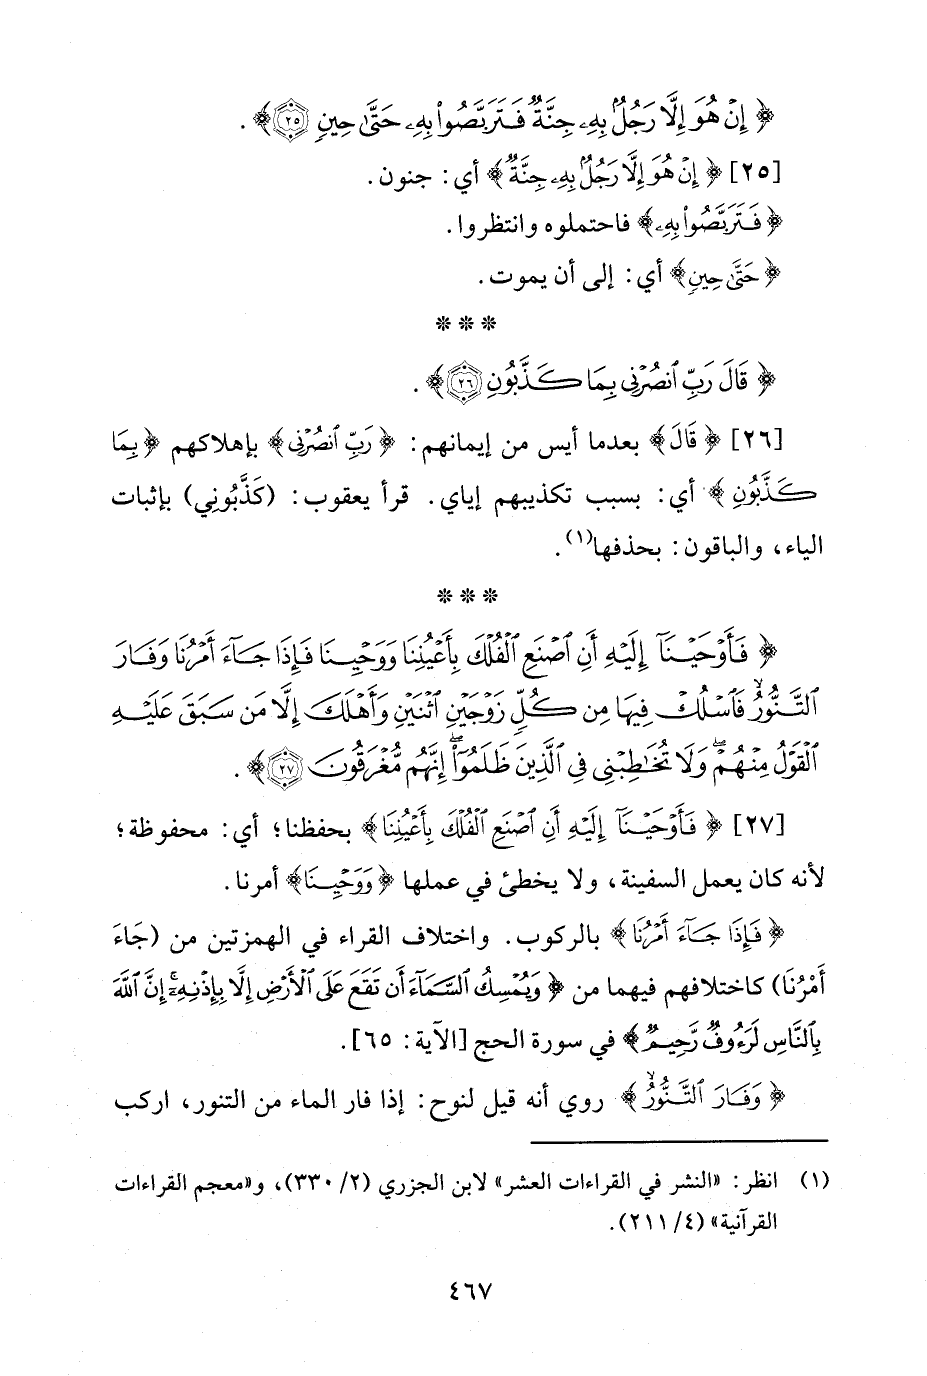 ﴿ إِنْ هُوَ إِلَّا رَجُلٌۢ بِهِۦ جِنَّةٌ فَتَرَبَّصُوا۟ بِهِۦ حَتَّىٰ حِينٍ ٢٥ ﴾ .
[٢٥] ﴿ إِنْ هُوَ إِلَّا رَجُلٌۢ بِهِۦ جِنَّةٌ ﴾ أي: جنون.
﴿ فَتَرَبَّصُوا۟ بِهِۦ ﴾ فاحتملوه وانتظروا.
﴿ حَتَّىٰ حِينٍ ﴾ أي: إلى أن يموت.
* * *
﴿ قَالَ رَبِّ ٱنصُرْنِى بِمَا كَذَّبُونِ ٢٦ ﴾ .
[٢٦] ﴿ قَالَ ﴾ بعدما أيس من إيمانهم: ﴿ رَبِّ ٱنصُرْنِى ﴾ بإهلاكهم ﴿ بِمَا
كَذَّبُونِ ﴾ أي: بسبب تكذيبهم إياي. قرأ يعقوب: (كَذَّبُونِي) بإثبات
الياء، والباقون: بحذفها(١).
* * *
﴿ فَأَوْحَيْنَآ إِلَيْهِ أَنِ ٱصْنَعِ ٱلْفُلْكَ بِأَعْيُنِنَا وَوَحْيِنَا فَإِذَا جَآءَ أَمْرُنَا وَفَارَ
ٱلتَّنُّورُ ۙ فَٱسْلُكْ فِيهَا مِن كُلٍّ زَوْجَيْنِ ٱثْنَيْنِ وَأَهْلَكَ إِلَّا مَن سَبَقَ عَلَيْهِ
ٱلْقَوْلُ مِنْهُمْ ۖ وَلَا تُخَٰطِبْنِى فِى ٱلَّذِينَ ظَلَمُوٓا۟ ۖ إِنَّهُم مُّغْرَقُونَ ٢٧ ﴾ .
[٢٧] ﴿ فَأَوْحَيْنَآ إِلَيْهِ أَنِ ٱصْنَعِ ٱلْفُلْكَ بِأَعْيُنِنَا ﴾ بحفظنا؛ أي: محفوظة؛
لأنه كان يعمل السفينة، ولا يخطئ في عملها ﴿ وَوَحْيِنَا ﴾ أمرنا.
﴿ فَإِذَا جَآءَ أَمْرُنَا ﴾ بالركوب. واختلاف القراء في الهمزتين من (جَاءَ
أَمْرُنَا) كاختلافهم فيهما من ﴿ وَيُمْسِكُ ٱلسَّمَآءَ أَن تَقَعَ عَلَى ٱلْأَرْضِ إِلَّا بِإِذْنِهِۦٓ ۗ إِنَّ ٱللَّهَ
بِٱلنَّاسِ لَرَءُوفٌ رَّحِيمٌ ﴾ في سورة الحج [الآية: ٦٥].
﴿ وَفَارَ ٱلتَّنُّورُ ۙ ﴾ روي أنه قيل لنوح: إذا فار الماء من التنور، اركب
(١) انظر: «النشر في القراءات العشر» لابن الجزري (٢/ ٣٣٠)، و«معجم القراءات
القرآنية» (٤/ ٢١١).
٤٦٧